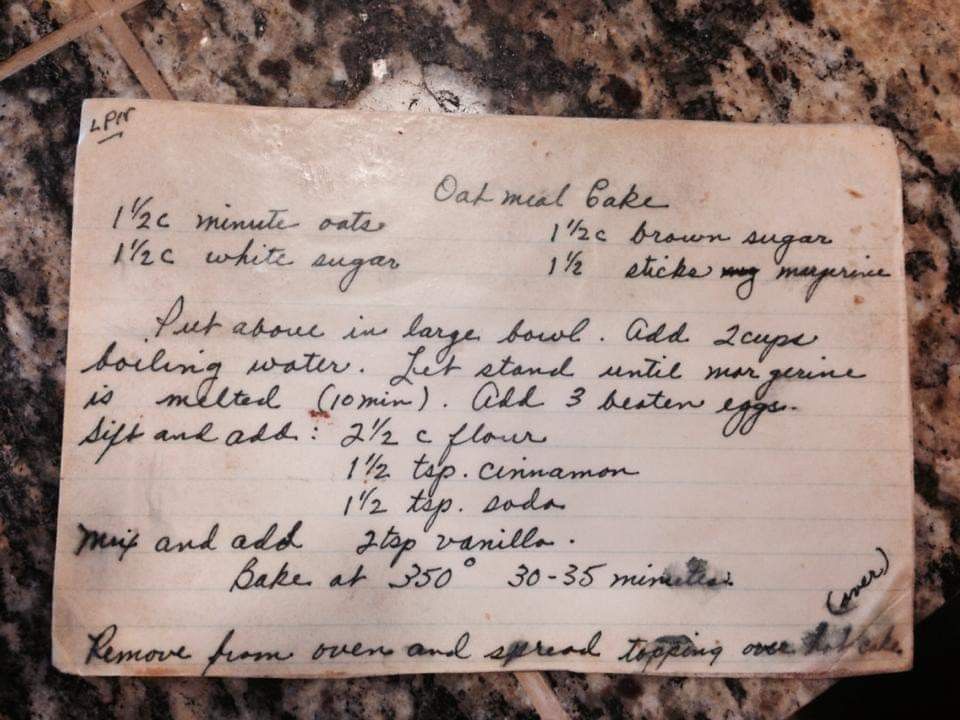 Oatmeal Cake
1 1/2 c minute oats 1 1/2 c brown sugar
1 1/2 c white sugar 1 1/2 sticks margerine
Put above in large bowl. Add 2 cups
boiling water. Let stand until margerine
is melted (10 min). Add 3 beaten eggs.
Sift and add: 2 1/2 c flour
1 1/2 tsp. cinnamon
1 1/2 tsp. soda
Mix and add 2 tsp vanilla.
Bake at 350° 30-35 minutes.
(over)
Remove from oven and spread topping over hot cake